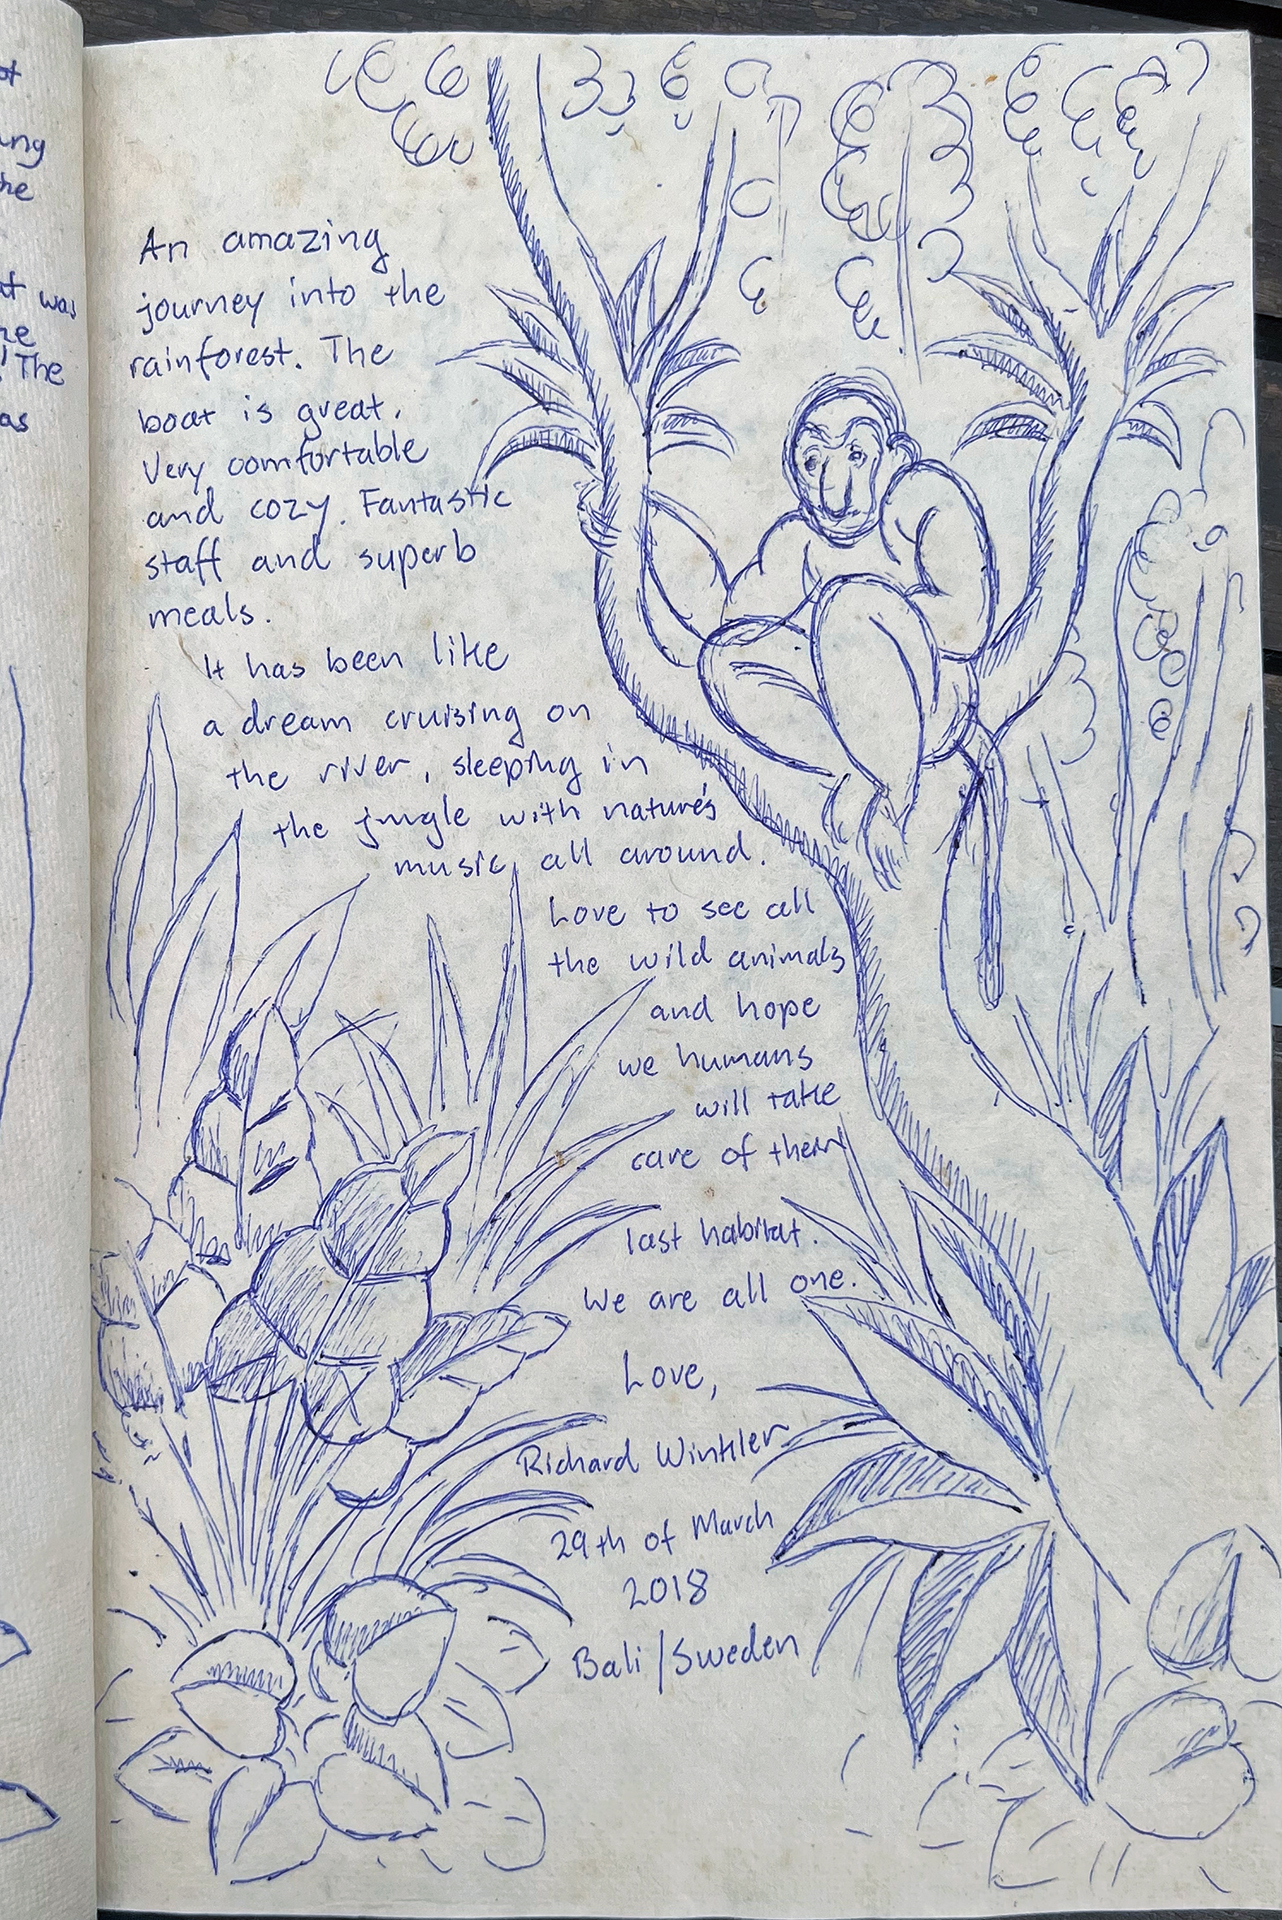 ot
ung
he
at was
he
! The
as
An amazing
journey into the
rainforest. The
boat is great.
Very comfortable
and cozy. Fantastic
staff and superb
meals.
It has been like
a dream cruising on
the river, sleeping in
the jungle with nature's
music all around.
Love to see all
the wild animals
and hope
we humans
will take
care of their
last habitat.
We are all one.
Love,
Richard Winkler
29th of March
2018
Bali/Sweden